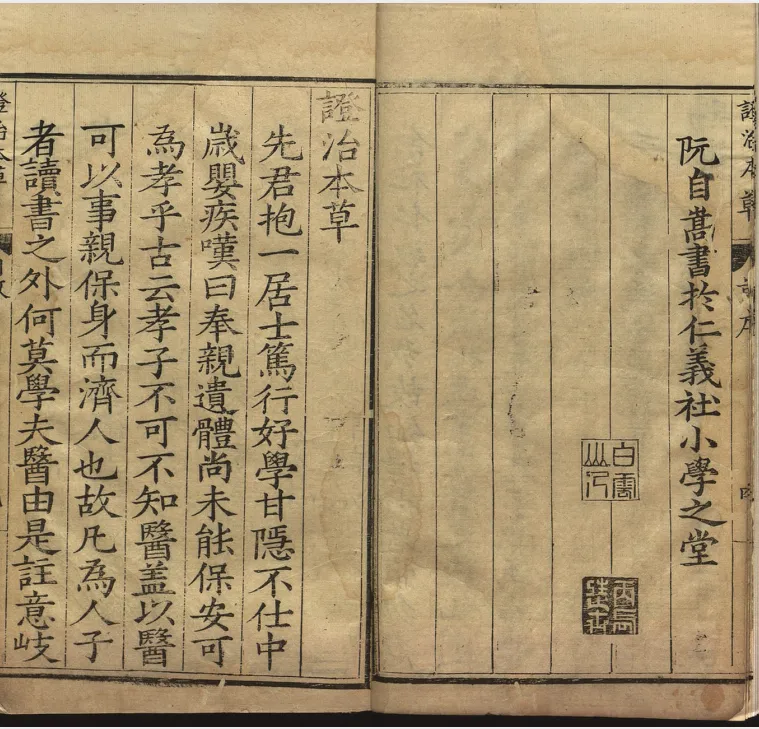 證治本草
阮自嵩書扵仁義社小學之堂
白雲山人
丙辰進士
證治本草
先君抱一居士篤行好學甘隱不仕中
歳嬰疾嘆曰奉親遺體尚未能保安可
為孝乎古云孝子不可不知醫盖以醫
可以事親保身而濟人也故凡為人子
者讀書之外何莫學夫醫由是註意岐
證治本草